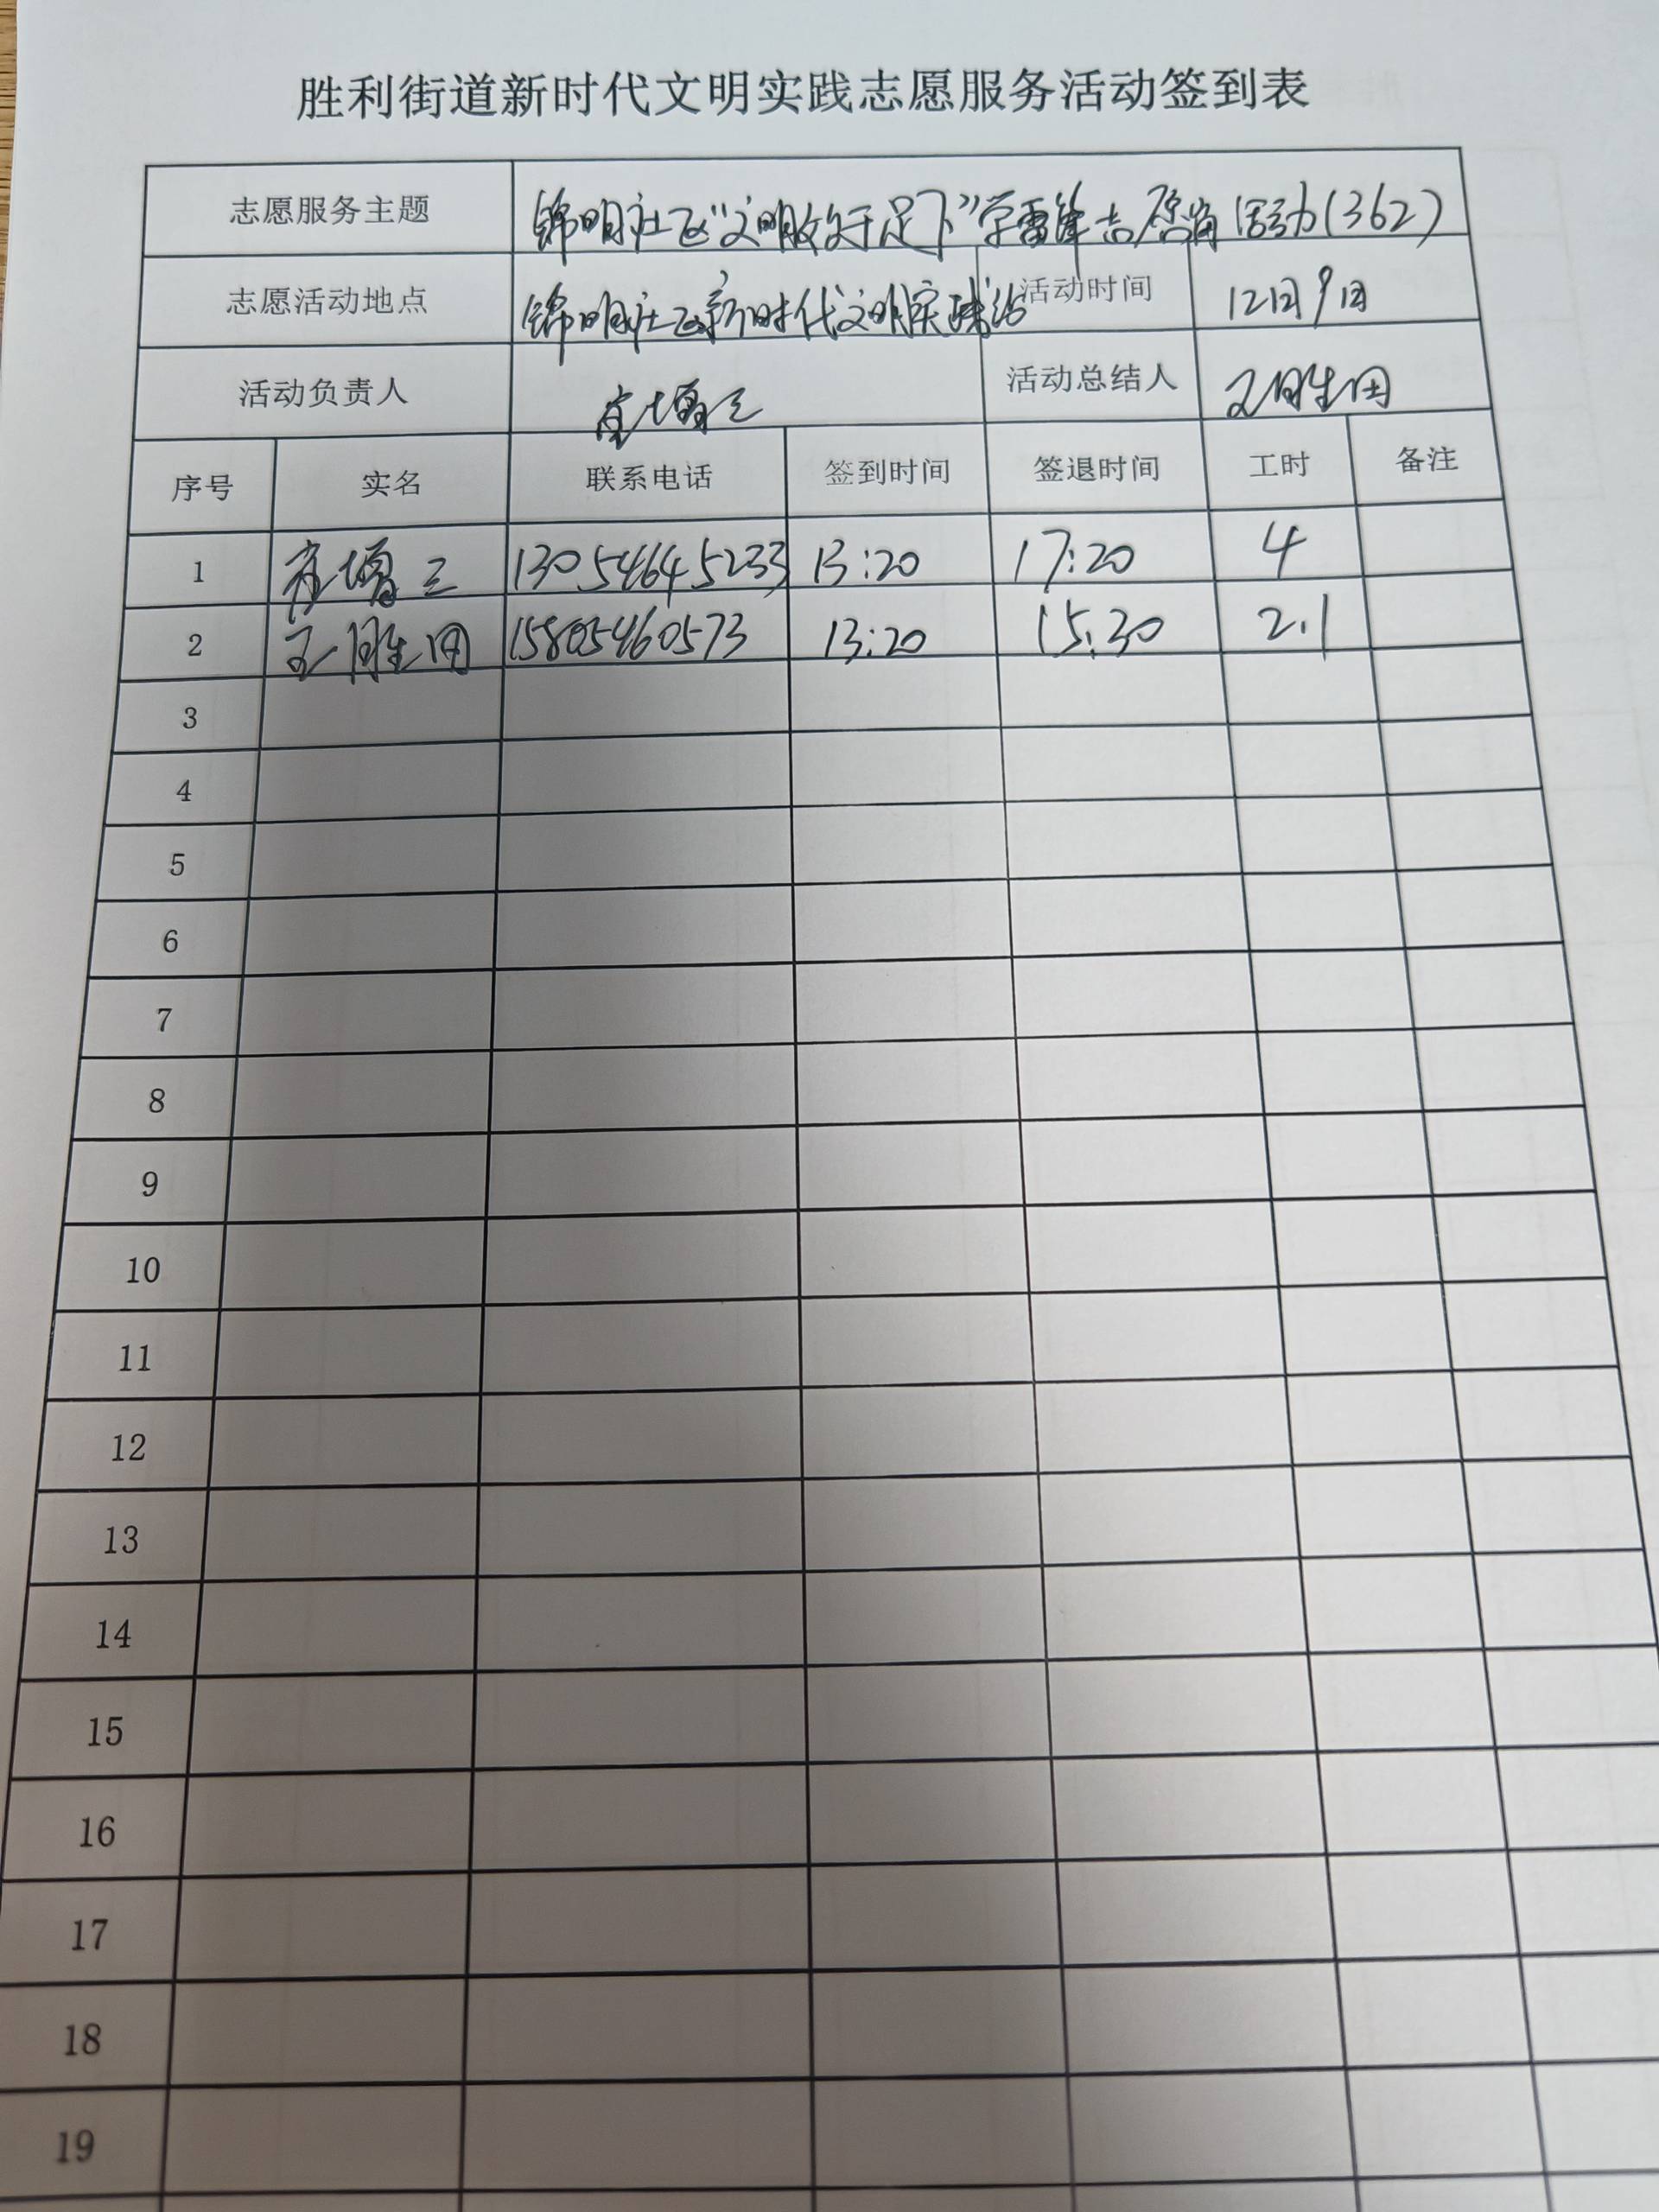 胜利街道新时代文明实践志愿服务活动签到表
志愿服务主题 锦明社区"文明始于足下"学雷锋志愿岗活动(362)
志愿活动地点 锦明社区新时代文明实践站 活动时间 12月9日
活动负责人 增三 活动总结人 王胜田
序号 实名 联系电话 签到时间 签退时间 工时 备注
1 增三 13054645233 13:20 17:20 4
2 王胜田 15805460573 13:20 15:30 2.1
3
4
5
6
7
8
9
10
11
12
13
14
15
16
17
18
19